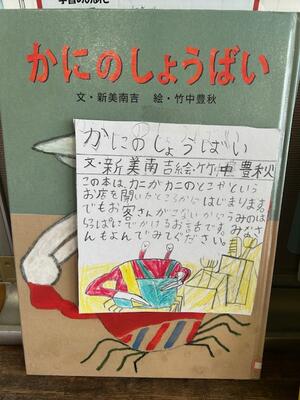 かにのしょうばい
文・新美南吉　絵・竹中豊秋
かにのしょうばい
文・新美南吉絵・竹中豊秋
この本は、カニがカニのとこやという
お店を開いたところからはじまります。
でもお客さんがこないからうみのは
らっぱにでかけるお話です。みなさ
んもよんでみてください。